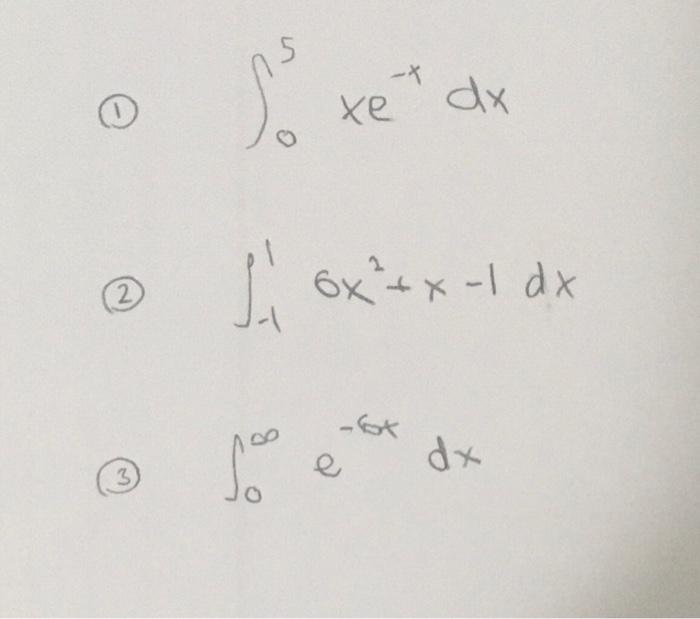 ① ∫₀⁵ xe⁻ˣ dx
② ∫₋₁¹ 6x² + x - 1 dx
③ ∫₀^∞ e^(-6x) dx